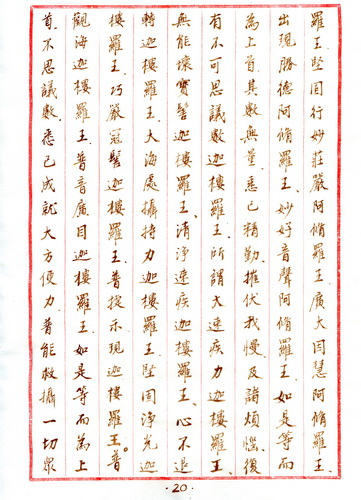 羅王、堅固行妙莊嚴阿脩羅王、廣大因慧阿脩羅王、
出現勝德阿脩羅王、妙好音聲阿脩羅王、如是等而
為上首、其數無量、悉已精勤、摧伏我慢及諸煩惱。復
有不可思議數迦樓羅王、所謂大速疾力迦樓羅王、
無能壞寶髻迦樓羅王、清淨速疾迦樓羅王、心不退
轉迦樓羅王、大海處攝持力迦樓羅王、堅固淨光迦
樓羅王、巧嚴冠髻迦樓羅王、普捷示現迦樓羅王。普
觀海迦樓羅王、普音廣目迦樓羅王、如是等而為上
首、不思議數、悉已成就大方便力、善能救攝一切眾
·20·